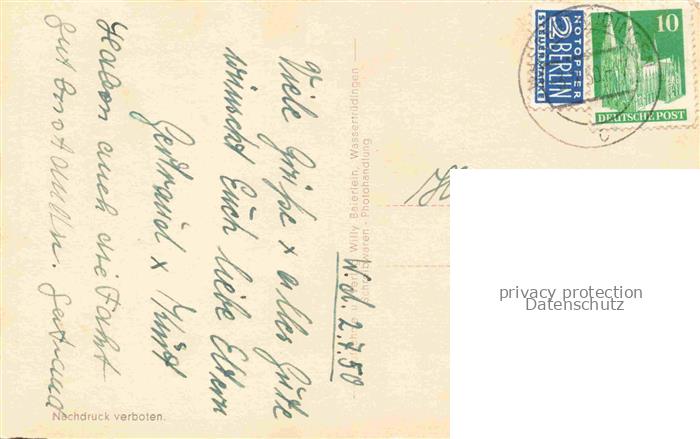 W. d. 2.7.50
Viele Grüße + alles Gute
wünscht Euch liebe Eltern
Gertraud + Kurt
Haben auch die Fahrt
gut
Gertraud
Willy Baierlein, Wassertrüdingen
Schreibwaren - Photohandlung
Nachdruck verboten.
NOTOPFER
2 BERLIN
STEUERMARKE
10
DEUTSCHE POST
C
privacy protection
Datenschutz